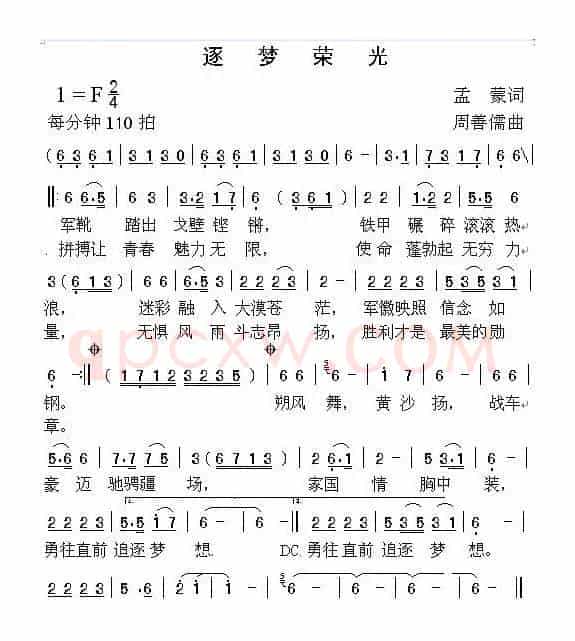 逐 梦 荣 光
1=F 2/4 孟 蒙词
每分钟110 拍 周善儒曲
(6 3 6 1 | 3 1 3 0 | 6 3 6 1 | 3 1 3 0 | 6 - | 3·1 | 7 3 1 7 | 6 6 \
‖: 6 6·5 | 6 3 | 3·2 1 7 | 6 (3 6 1) | 2 2 | 1·2 2 | 5·3 5 | 6
军靴 踏出 戈壁 铿 锵, 铁甲 碾 碎 滚滚 热
拼搏让 青春 魅力无 限, 使命 蓬勃起 无穷 力
3 (6 1 3) | 6 6 | 6·5 | 3 2 2 | 2 - | 2 2 2 3 | 5 3 5 3 1
浪, 迷彩 融 入 大漠苍 茫, 军徽映照 信念 如
量, 无惧 风 雨 斗志昂 扬, 胜利才是 最美的勋
6 - :‖ (1 7 1 2 3 2 3 5) | 6 6 | 6 - | 1 7 | 6 - | 6 6
钢。 朔风 舞, 黄 沙 扬, 战车
章。
5·6 6 | 7·7 7 5 | 3 (6 7 1 3) | 2 6·1 | 2 - | 5 3 1 | 2 -
豪 迈 驰骋疆 场, 家国 情 胸中 装,
1. 2.
2 2 2 3 | 5·5 1 7 | 6 - | 6 - :‖ 2 2 2 3 | 5 3 5 3 1 | 6 -
勇往直前 追逐 梦 想。 DC. 勇往直前 追逐 梦 想。
2 2 2 3 | 5·5 | 7 - | 2 1 | 1 - | 6 - | 6 - | 6 - | 6 0
qpcxw.COM